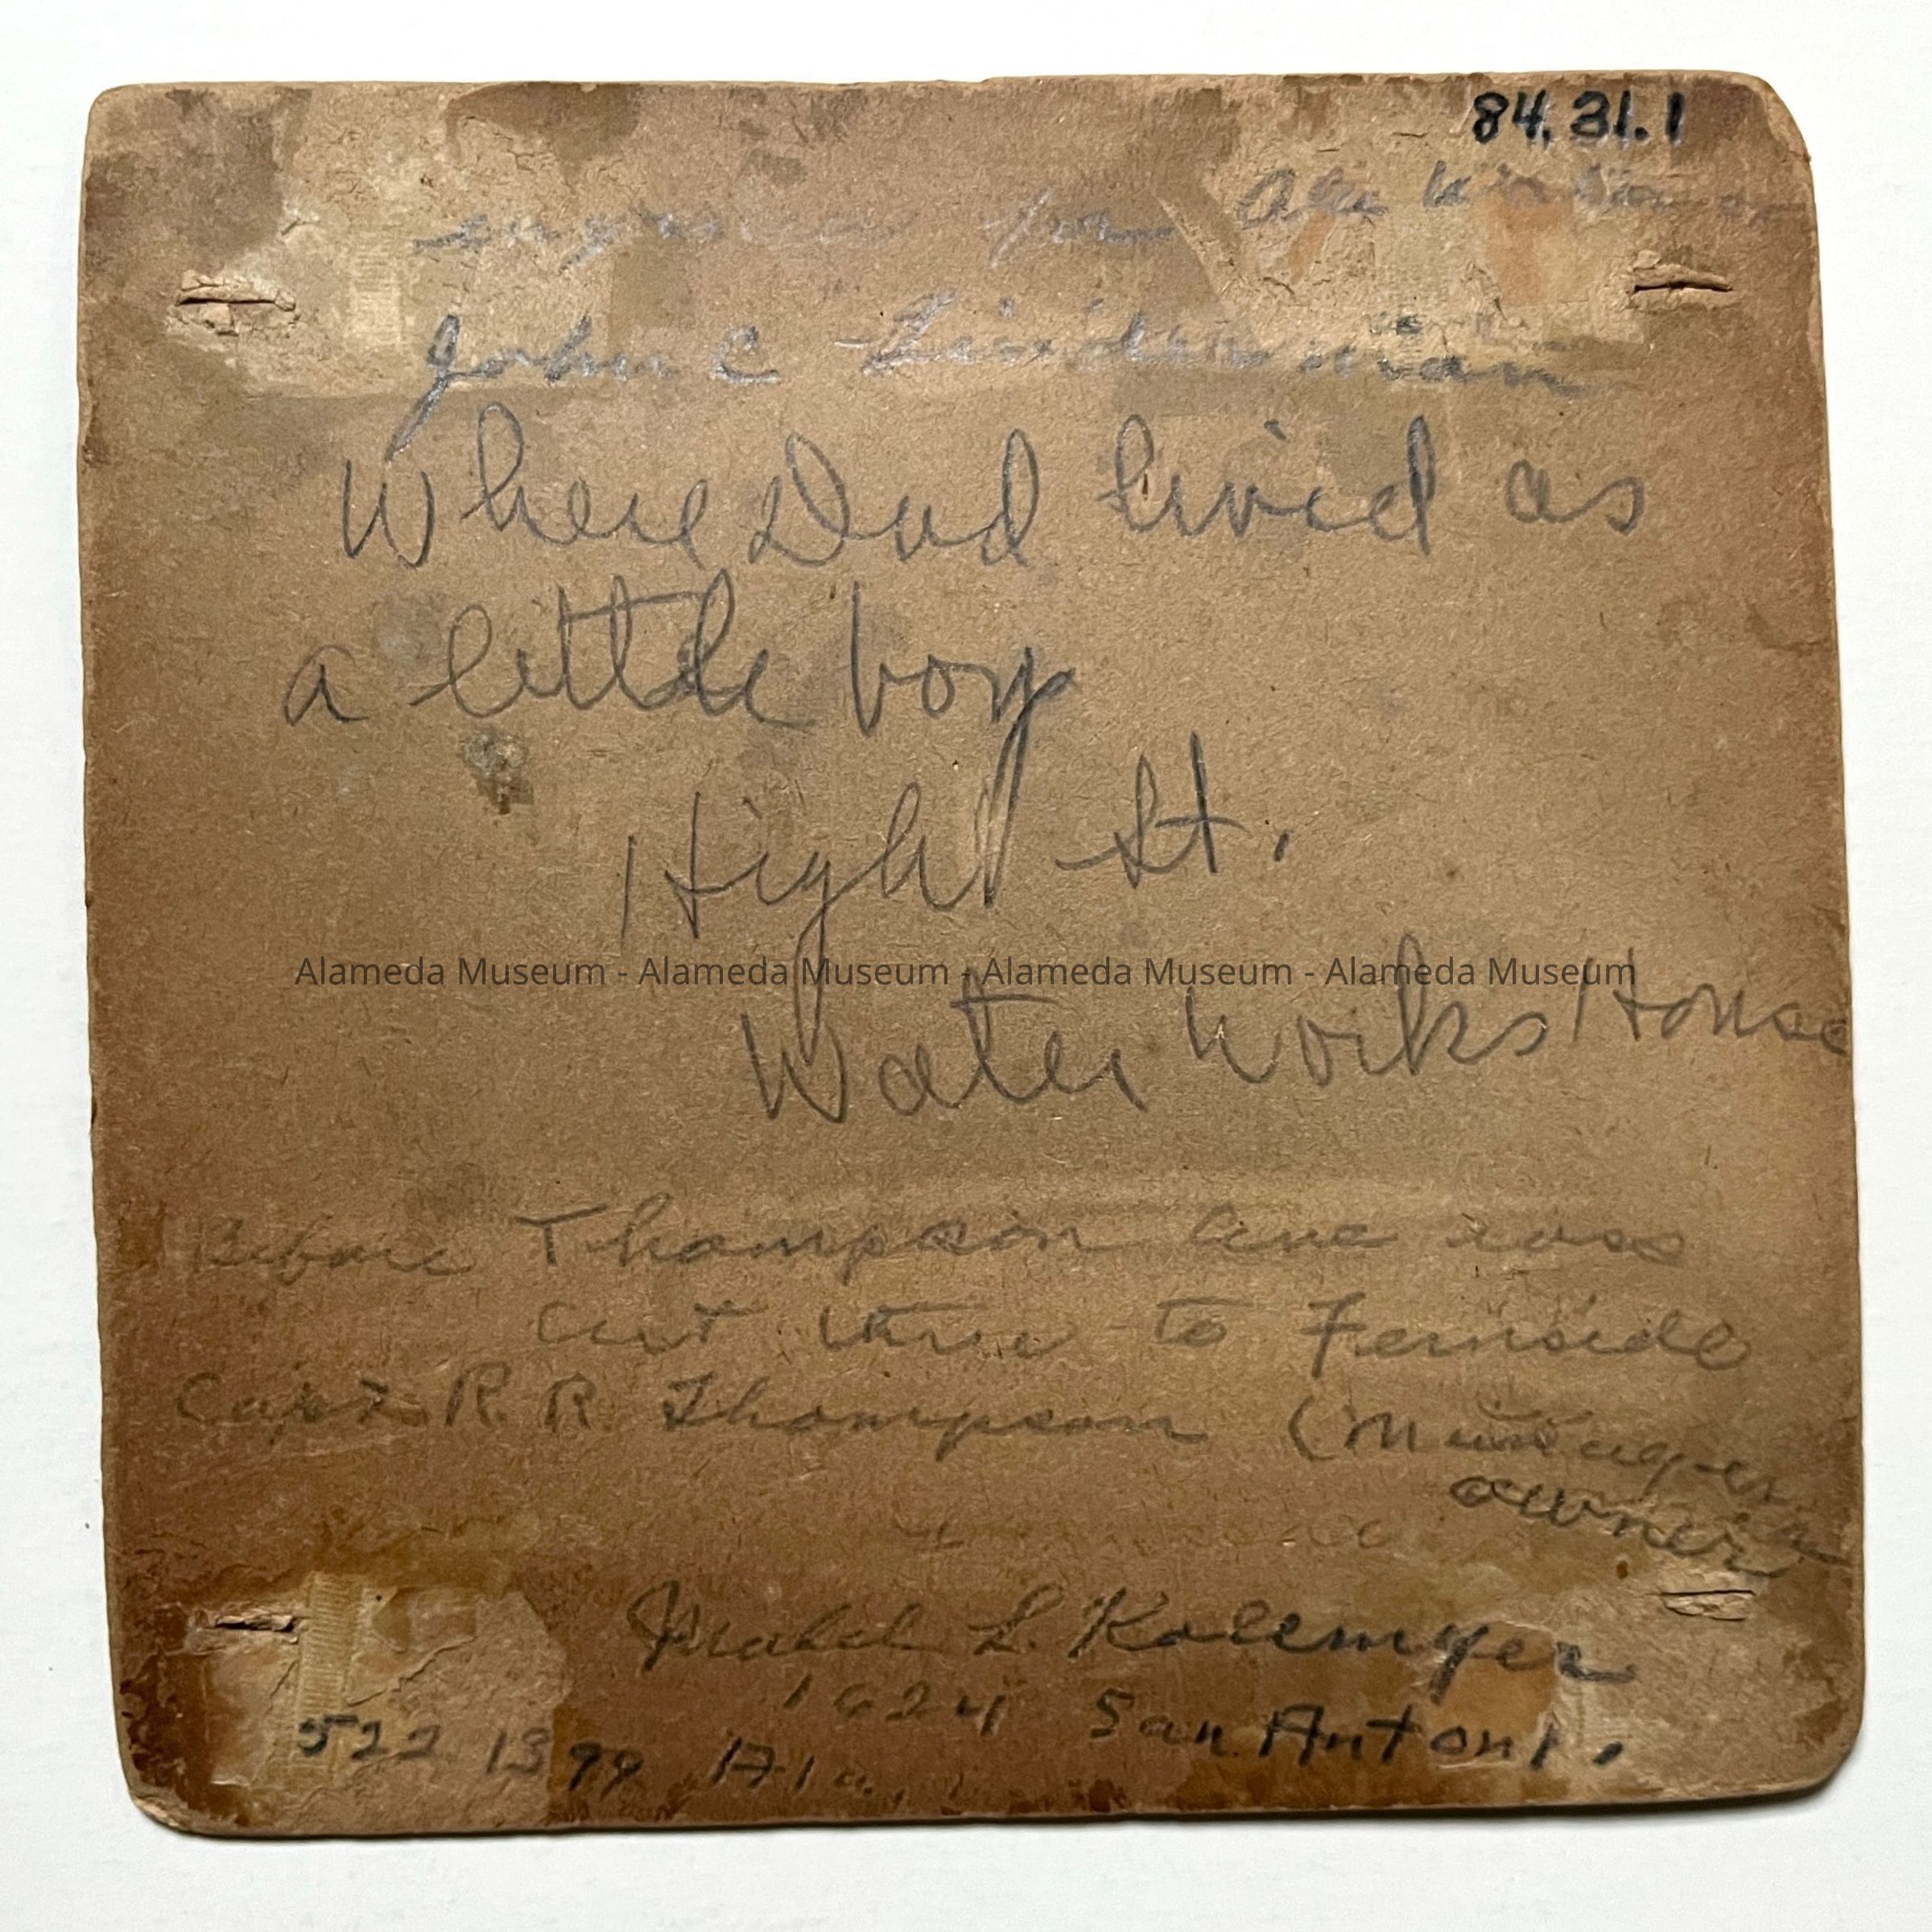 84.31.1
engineer for Ala
John C Linderman
Where Dad lived as
a little boy
High St.
Alameda Museum - Alameda Museum - Alameda Museum - Alameda Museum
Water Works House
Before Thompson Ave was
cut thru to Fernside
Capt R. R. Thompson (Manager
owner
Mabel L. Kolemyer
1624 San Antoni.
522 1399 Ala.